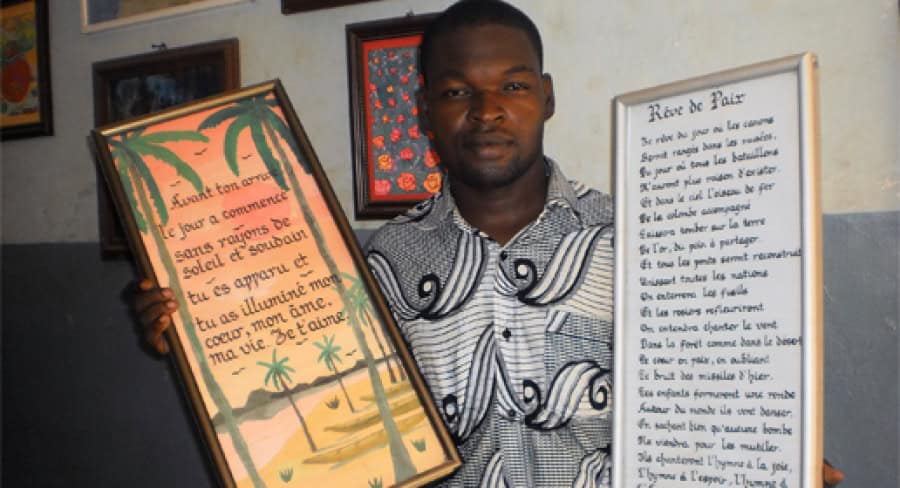 Avant ton arrivée
le jour a commencé
sans rayons de
soleil et soudain
tu es apparu et
tu as illuminé mon
coeur, mon âme,
ma vie. Je t'aime.
Rêve de Paix
Je rêve du jour où les canons
Seront rangés dans les musées,
Du jour où tous les bataillons
N'auront plus raison d'exister.
Et dans le ciel l'oiseau de fer
De la colombe accompagné
Laissera tomber sur la terre
De l'or, du pain à partager.
Et tous les ponts seront reconstruit
Unissant toutes les nations
On enterrera les fusils
Et les rosiers refleuriront
On entendra chanter le vent
Dans la forêt comme dans le désert
Le coeur en paix, en oubliant
Le bruit des missiles d'hier.
Les enfants formeront une ronde
Autour du monde ils vont danser.
En sachant bien qu'aucune bombe
Ils viendra pour les mutiler.
Ils chanteront l'hymne à la joie,
L'hymne à l'espoir, l'hymne à